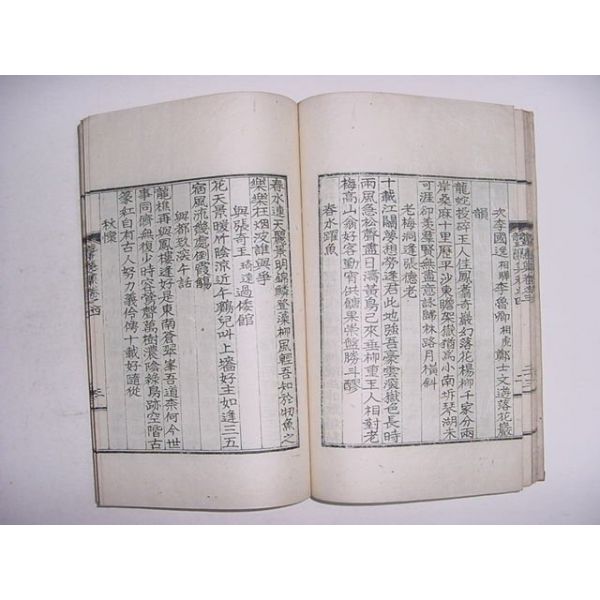 次李國連相聯李魯卿相虎鄭士文遊落花巖
韻
龍蛇投碎玉人佳鳳者奇巖幻落花楊柳千家分兩
岸桑麻十里歷平沙東瞻架嶽猶爲小南坼琴湖未
可涯却羨羣賢無盡意詠歸林路月橫斜
老梅洞逢張德老
十載江關夢想勞逢君此地強吾豪雲深嶽色長時
雨風急松聲盡日濤黃鳥已來垂柳重玉人相對老
梅高山翁好客勤供糖果榮盤勝斗醪
春水躍魚
春水連天醫景明錦鱗登藻柳風輕吾如於牣魚之
樂樂在烟波誰與爭
與張奇玉琦逢過倭館
花天景暖竹陰凉近午鶴兒叫上墻好主如逢三五
宿風流幾處倒霞觴
與都玖溪午話
龍樵再與鳳樓逢好是東南蒼翠峯吾道奈何今世
事同儕無復少時容管聲萬樹濃陰綠鳥跡空階古
篆紅自有古人努力義伶俜十載好隨從
秋懷